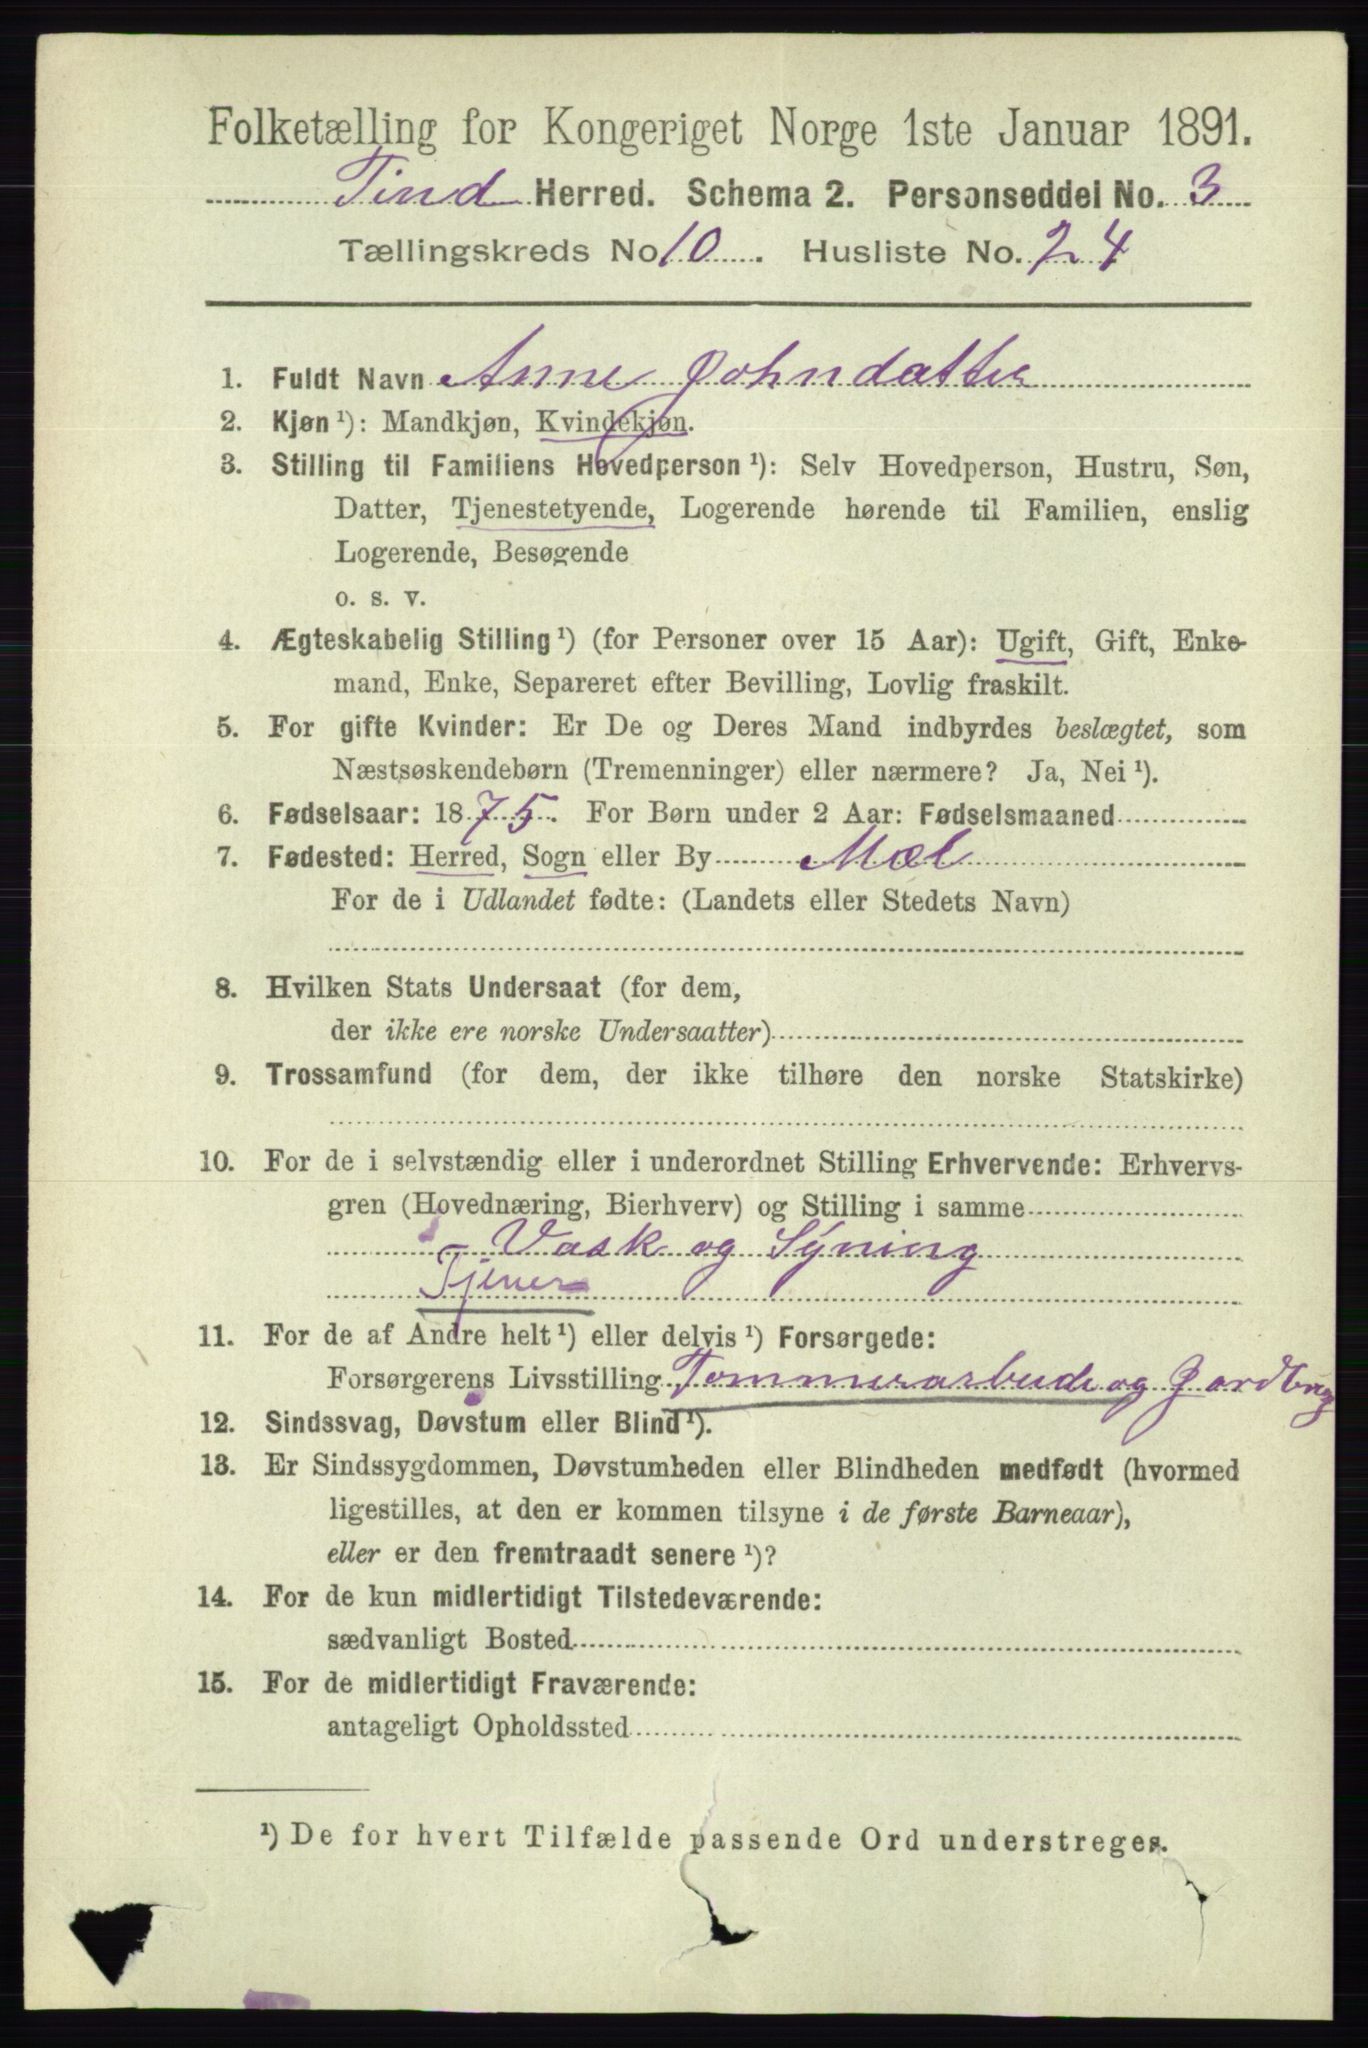 Folketælling for Kongeriget Norge 1ste Januar 1891.
Tind Herred. Schema 2. Personseddel No. 3
Tællingskreds No 10. Husliste No. 24
1. Fuldt Navn Anne Johndatter
2. Kjøn ¹): Mandkjøn, Kvindekjøn.
3. Stilling til Familiens Hovedperson ¹): Selv Hovedperson, Hustru, Søn,
Datter, Tjenestetyende, Logerende hørende til Familien, enslig
Logerende, Besøgende
o. s. v.
4. Ægteskabelig Stilling ¹) (for Personer over 15 Aar): Ugift, Gift, Enke-
mand, Enke, Separeret efter Bevilling, Lovlig fraskilt.
5. For gifte Kvinder: Er De og Deres Mand indbyrdes beslægtet, som
Næstsøskendebørn (Tremenninger) eller nærmere? Ja, Nei ¹).
6. Fødselsaar: 1875. For Børn under 2 Aar: Fødselsmaaned
7. Fødested: Herred, Sogn eller By Mæl
For de i Udlandet fødte: (Landets eller Stedets Navn)
8. Hvilken Stats Undersaat (for dem,
der ikke ere norske Undersaatter)
9. Trossamfund (for dem, der ikke tilhøre den norske Statskirke)
10. For de i selvstændig eller i underordnet Stilling Erhvervende: Erhvervs-
gren (Hovednæring, Bierhverv) og Stilling i samme
- Vask og Syning
Tjener
11. For de af Andre helt ¹) eller delvis ¹) Forsørgede:
Forsørgerens Livsstilling Tømmerarbeide og Jordbrug
12. Sindssvag, Døvstum eller Blind ¹).
13. Er Sindssygdommen, Døvstumheden eller Blindheden medfødt (hvormed
ligestilles, at den er kommen tilsyne i de første Barneaar),
eller er den fremtraadt senere ¹)?
14. For de kun midlertidigt Tilstedeværende:
sædvanligt Bosted
15. For de midlertidigt Fraværende:
antageligt Opholdssted
¹) De for hvert Tilfælde passende Ord understreges.